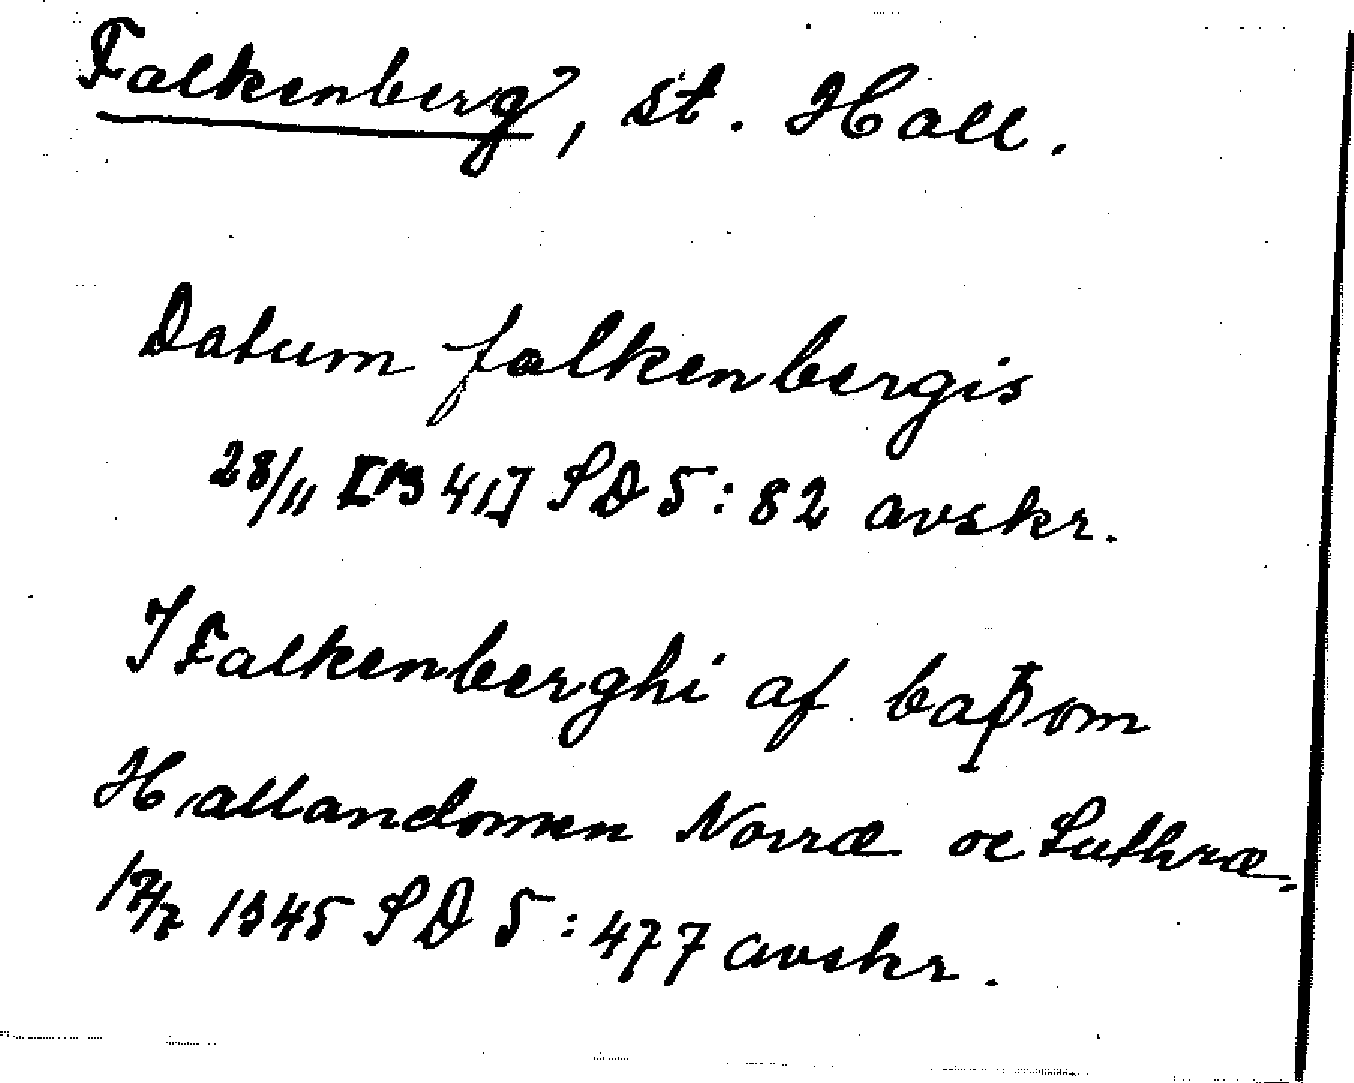 Falkenberg, st. Hall.
Datum falkenbergis
28/11 [1341] SD 5:82 avskr.
J Falkenberghi af baþom
Hallandomen Norræ oc Suthræ,
1345 SD 5:477 avskr.